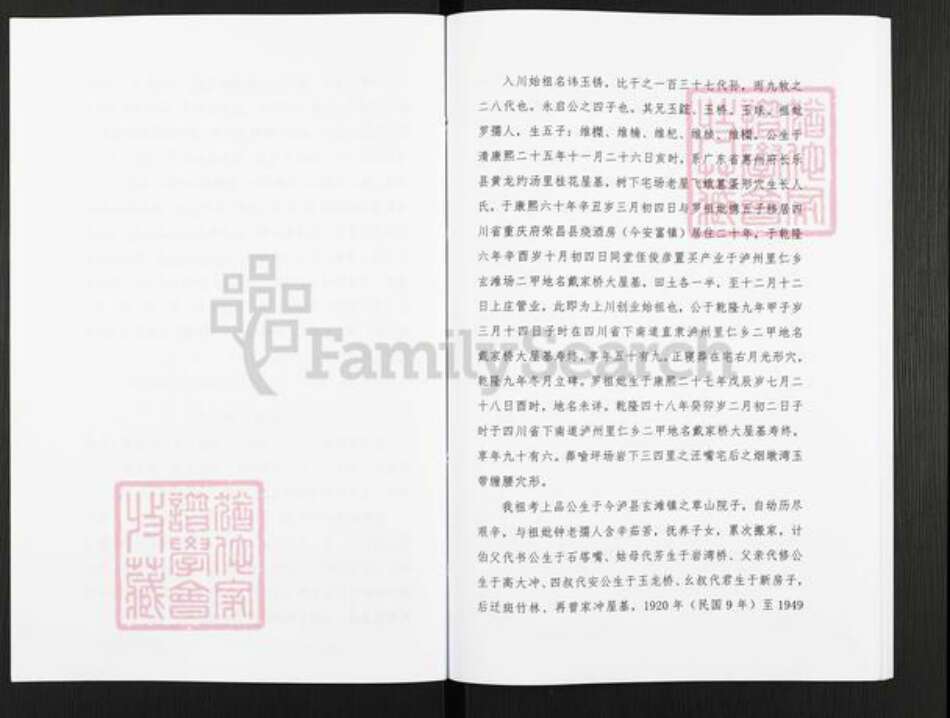 入川始祖名讳玉锈，比干之一百三十七代孙，雨九牧之
二八代也，永启公之四子也，其兄玉鎹、玉桥、玉球，祖妣
罗孺人，生五子：维樱、维楠、维杞、维桢、维榴。公生于
清康熙二十五年十一月二十六日亥时，系广东省惠州府长乐
县黄龙约汤里桂花屋基，树下宅场老屋飞蛾墓蛋形穴生长人
氏，于康熙六十年辛丑岁三月初四日与罗祖妣携五子移居四
川省重庆府荣昌县烧酒房（今安富镇）居住二十年，于乾隆
六年辛酉岁十月初四日同堂侄俊彦置买产业于泸州里仁乡
玄滩场二甲地名戴家桥大屋基，回土各一半，至十二月十二
日上庄管业，此即为上川创业始祖也，公于乾隆九年甲子岁
三月十四日子时在四川省下南道直隶泸州里仁乡二甲地名
戴家桥大屋基寿终，享年五十有九，正寝葬在宅右月光形穴，
乾隆九年冬月立碑。罗祖妣生于康熙二十七年戊辰岁七月二
十八日酉时，地名未详，乾隆四十八年癸卯岁二月初二日子
时于四川省下南道泸州里仁乡二甲地名戴家桥大屋基寿终，
享年九十有六，葬喻坪场岩下三四里之汪嘴宅后之烟墩湾玉
带缠腰穴形。
我祖考上品公生于今泸县玄滩镇之草山院子，自幼历尽
艰辛，与祖妣钟老孺人含辛茹苦，抚养子女，累次搬家，计
伯父代书公生于石塔嘴、姑母代芳生于岩湾桥、父亲代修公
生于高大冲、四叔代安公生于玉龙桥、幺叔代君生于新房子，
后迁斑竹林、再曾家冲屋基，1920年（民国9年）至1949
FamilySearch